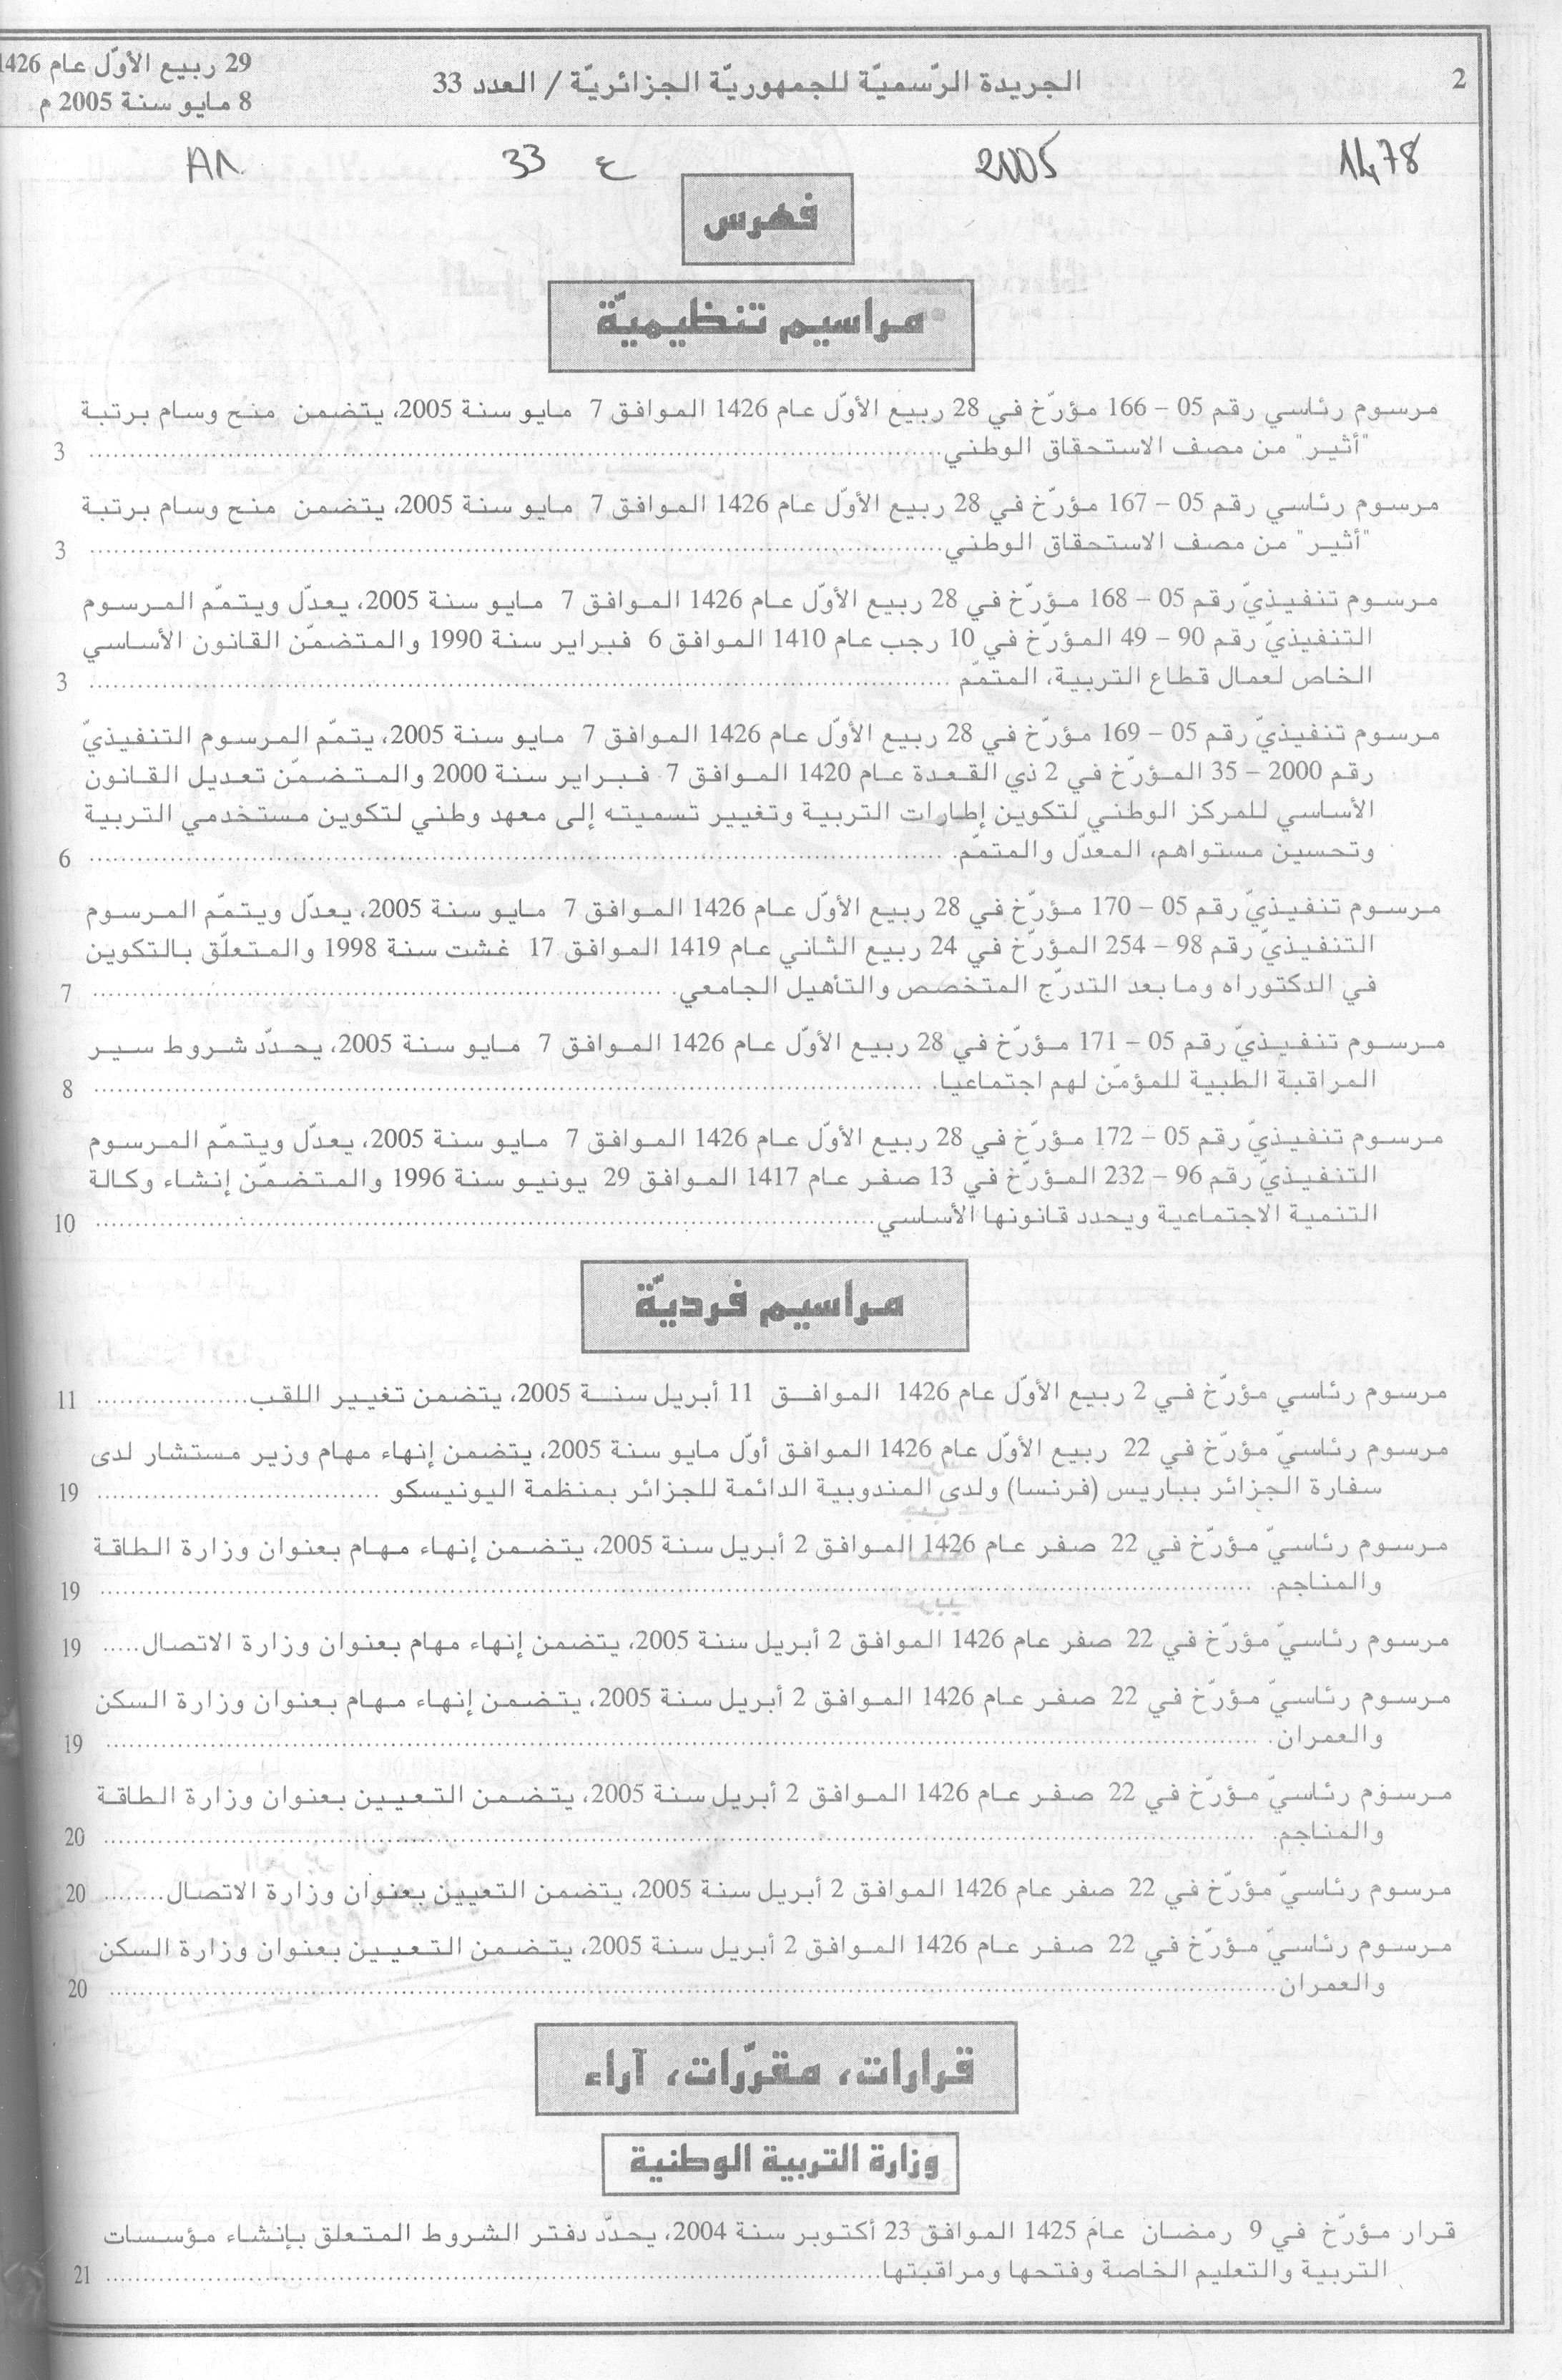 2
الجريدة الرّسميّة للجمهوريّة الجزائريّة / العدد 33
29 ربيع الأوّل عام 1426
8 مايو سنة 2005 م
1478 2005 ع 33
فهرس
مراسيم تنظيميّة
مرسوم رئاسي رقم 05 – 166 مؤرّخ في 28 ربيع الأوّل عام 1426 الموافق 7 مايو سنة 2005، يتضمن منح وسام برتبة
"أثير" من مصف الاستحقاق الوطني.......... 3
مرسوم رئاسي رقم 05 – 167 مؤرّخ في 28 ربيع الأوّل عام 1426 الموافق 7 مايو سنة 2005، يتضمن منح وسام برتبة
"أثير" من مصف الاستحقاق الوطني.......... 3
مرسوم تنفيذيّ رقم 05 – 168 مؤرّخ في 28 ربيع الأوّل عام 1426 الموافق 7 مايو سنة 2005، يعدّل ويتمّم المرسوم
التنفيذيّ رقم 90 – 49 المؤرّخ في 10 رجب عام 1410 الموافق 6 فبراير سنة 1990 والمتضمّن القانون الأساسي
الخاص لعمال قطاع التربية، المتمّم .......... 3
مرسوم تنفيذيّ رقم 05 – 169 مؤرّخ في 28 ربيع الأوّل عام 1426 الموافق 7 مايو سنة 2005، يتمّم المرسوم التنفيذيّ
رقم 2000 – 35 المؤرّخ في 2 ذي القعدة عام 1420 الموافق 7 فبراير سنة 2000 والمتضمّن تعديل القانون
الأساسي للمركز الوطني لتكوين إطارات التربية وتغيير تسميته إلى معهد وطني لتكوين مستخدمي التربية
وتحسين مستواهم، المعدّل والمتمّم. .......... 6
مرسوم تنفيذيّ رقم 05 – 170 مؤرّخ في 28 ربيع الأوّل عام 1426 الموافق 7 مايو سنة 2005، يعدّل ويتمّم المرسوم
التنفيذيّ رقم 98 – 254 المؤرّخ في 24 ربيع الثاني عام 1419 الموافق 17 غشت سنة 1998 والمتعلّق بالتكوين
في الدكتوراه وما بعد التدرّج المتخصص والتأهيل الجامعي. .......... 7
مرسوم تنفيذيّ رقم 05 – 171 مؤرّخ في 28 ربيع الأوّل عام 1426 الموافق 7 مايو سنة 2005، يحدّد شروط سير
المراقبة الطبية للمؤمّن لهم اجتماعيا. .......... 8
مرسوم تنفيذيّ رقم 05 – 172 مؤرّخ في 28 ربيع الأوّل عام 1426 الموافق 7 مايو سنة 2005، يعدّل ويتمّم المرسوم
التنفيذيّ رقم 96 – 232 المؤرّخ في 13 صفر عام 1417 الموافق 29 يونيو سنة 1996 والمتضمّن إنشاء وكالة
التنمية الاجتماعية ويحدد قانونها الأساسي.......... 10
مراسيم فرديّة
مرسوم رئاسي مؤرّخ في 2 ربيع الأوّل عام 1426 الموافق 11 أبريل سنة 2005، يتضمن تغيير اللقب.......... 11
مرسوم رئاسيّ مؤرّخ في 22 ربيع الأوّل عام 1426 الموافق أوّل مايو سنة 2005، يتضمن إنهاء مهام وزير مستشار لدى
سفارة الجزائر بباريس (فرنسا) ولدى المندوبية الدائمة للجزائر بمنظمة اليونيسكو .......... 19
مرسوم رئاسيّ مؤرّخ في 22 صفر عام 1426 الموافق 2 أبريل سنة 2005، يتضمن إنهاء مهام بعنوان وزارة الطاقة
والمناجم. .......... 19
مرسوم رئاسيّ مؤرّخ في 22 صفر عام 1426 الموافق 2 أبريل سنة 2005، يتضمن إنهاء مهام بعنوان وزارة الاتصال..... 19
مرسوم رئاسيّ مؤرّخ في 22 صفر عام 1426 الموافق 2 أبريل سنة 2005، يتضمن إنهاء مهام بعنوان وزارة السكن
والعمران. .......... 19
مرسوم رئاسيّ مؤرّخ في 22 صفر عام 1426 الموافق 2 أبريل سنة 2005، يتضمن التعيين بعنوان وزارة الطاقة
والمناجم. .......... 20
مرسوم رئاسيّ مؤرّخ في 22 صفر عام 1426 الموافق 2 أبريل سنة 2005، يتضمن التعيين بعنوان وزارة الاتصال........ 20
مرسوم رئاسيّ مؤرّخ في 22 صفر عام 1426 الموافق 2 أبريل سنة 2005، يتضمن التعيين بعنوان وزارة السكن
والعمران.......... 20
قرارات، مقرّرات، آراء
وزارة التربية الوطنية
قرار مؤرّخ في 9 رمضان عام 1425 الموافق 23 أكتوبر سنة 2004، يحدّد دفتر الشروط المتعلق بإنشاء مؤسسات
التربية والتعليم الخاصة وفتحها ومراقبتها.......... 21